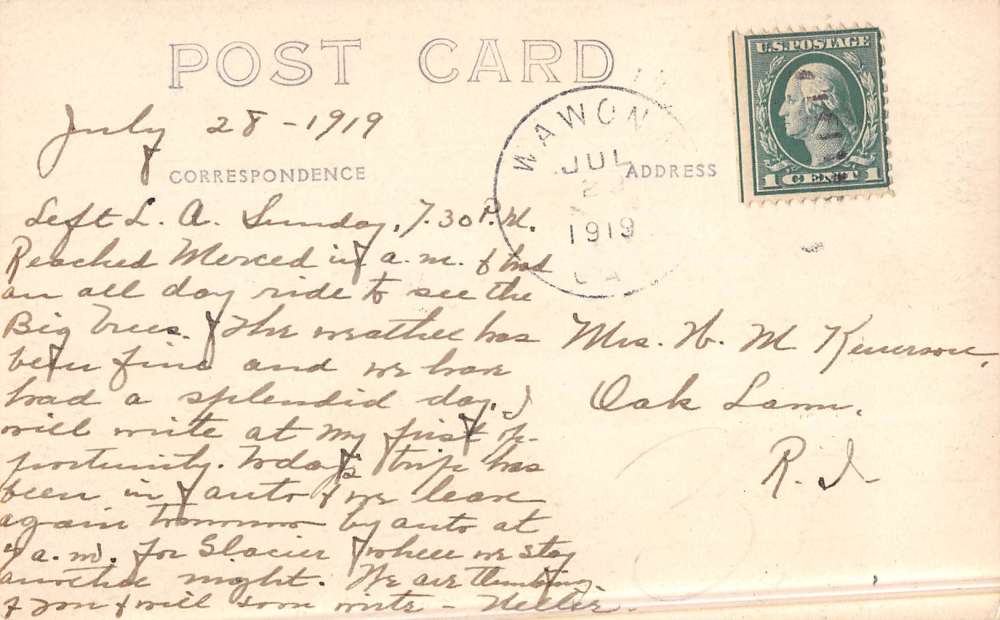 POST CARD
July 28-1919
CORRESPONDENCE
ADDRESS
WAWON
JUL
2
1919
CA
U.S. POSTAGE
1 CENT 1
Left L. A. Sunday, 7.30 P.M.
Reached Merced in a.m. & had
an all day ride to see the
Big Trees. The weather has
been fine and we have
had a splendid day. I
will write at my first op-
portunity. Today's trip has
been in auto & we leave
again tomorrow by auto at
7 a.m. for Glacier where we stay
another night. We are thinking
of you & will soon write - Nellie.
Mrs. H. M. Kenerson,
Oak Lawn,
R. I.